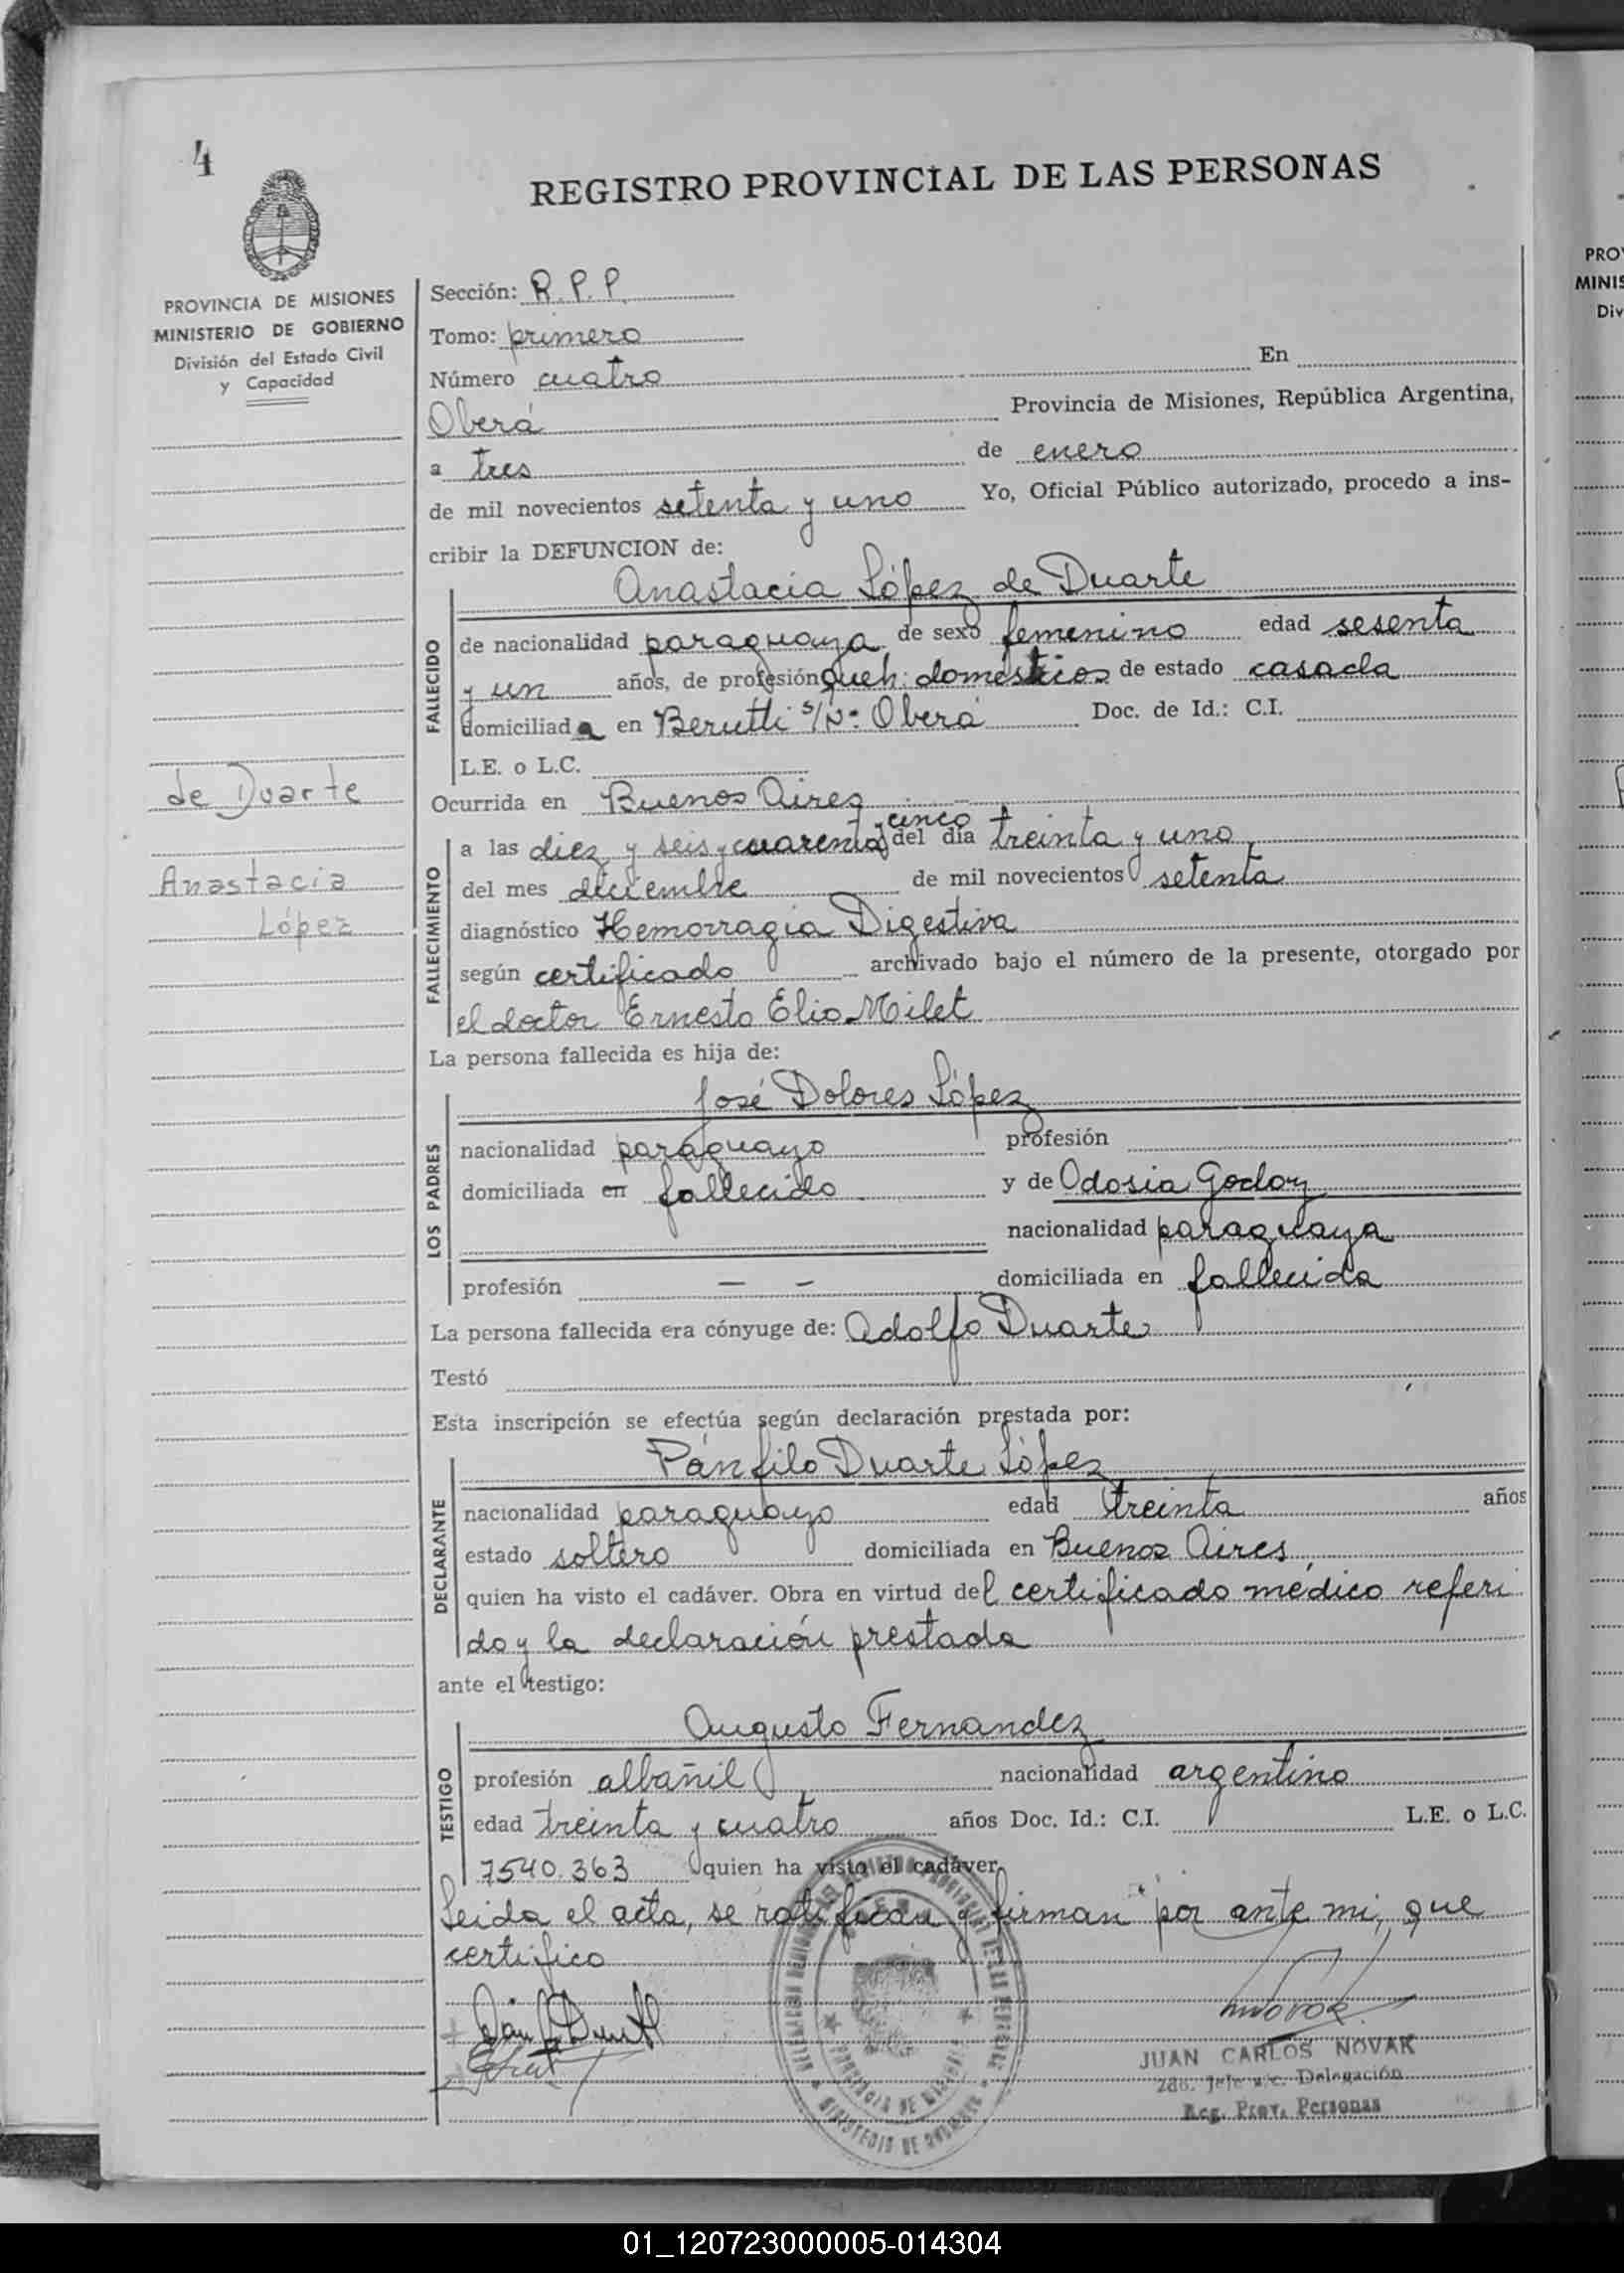 4
REGISTRO PROVINCIAL DE LAS PERSONAS
PROVINCIA DE MISIONES
MINISTERIO DE GOBIERNO
División del Estado Civil
y Capacidad
Sección: R.P.P.
Tomo: primero
Número cuatro En
Oberá Provincia de Misiones, República Argentina,
a tres de enero
de mil novecientos setenta y uno Yo, Oficial Público autorizado, procedo a ins-
cribir la DEFUNCION de:
Anastacia López de Duarte
FALLECIDO
de nacionalidad paraguaya de sexo femenino edad sesenta
y un años, de profesión queh. domésticos de estado casada
domiciliada en Berutti s/Nº Oberá Doc. de Id.: C.I.
L.E. o L.C.
de Duarte
Anastacia
López
Ocurrida en Buenos Aires
FALLECIMIENTO
a las diez y seis y cuarenta y cinco del día treinta y uno
del mes diciembre de mil novecientos setenta
diagnóstico Hemorragia Digestiva
según certificado archivado bajo el número de la presente, otorgado por
el doctor Ernesto Elio Milet
La persona fallecida es hija de:
José Dolores López
LOS PADRES
nacionalidad paraguayo profesión
domiciliada en fallecido y de Odosia Godoy
nacionalidad paraguaya
profesión — — domiciliada en fallecida
La persona fallecida era cónyuge de: Adolfo Duarte
Testó
Esta inscripción se efectúa según declaración prestada por:
Pánfilo Duarte López
DECLARANTE
nacionalidad paraguayo edad treinta años
estado soltero domiciliada en Buenos Aires
quien ha visto el cadáver. Obra en virtud del certificado médico referi
do y la declaración prestada
ante el testigo:
Augusto Fernandez
TESTIGO
profesión albañil nacionalidad argentino
edad treinta y cuatro años Doc. Id.: C.I. L.E. o L.C.
7540.363 quien ha visto el cadáver.
Leida el acta, se ratifican y firman por ante mi, que
certifico
JUAN CARLOS NOVAK
2do. Jefe a/c. Delegación
Reg. Prov. Personas
PROVINCIA DE MISIONES
MINISTERIO DE GOBIERNO
PRO
MINIS
Div
01_120723000005-014304